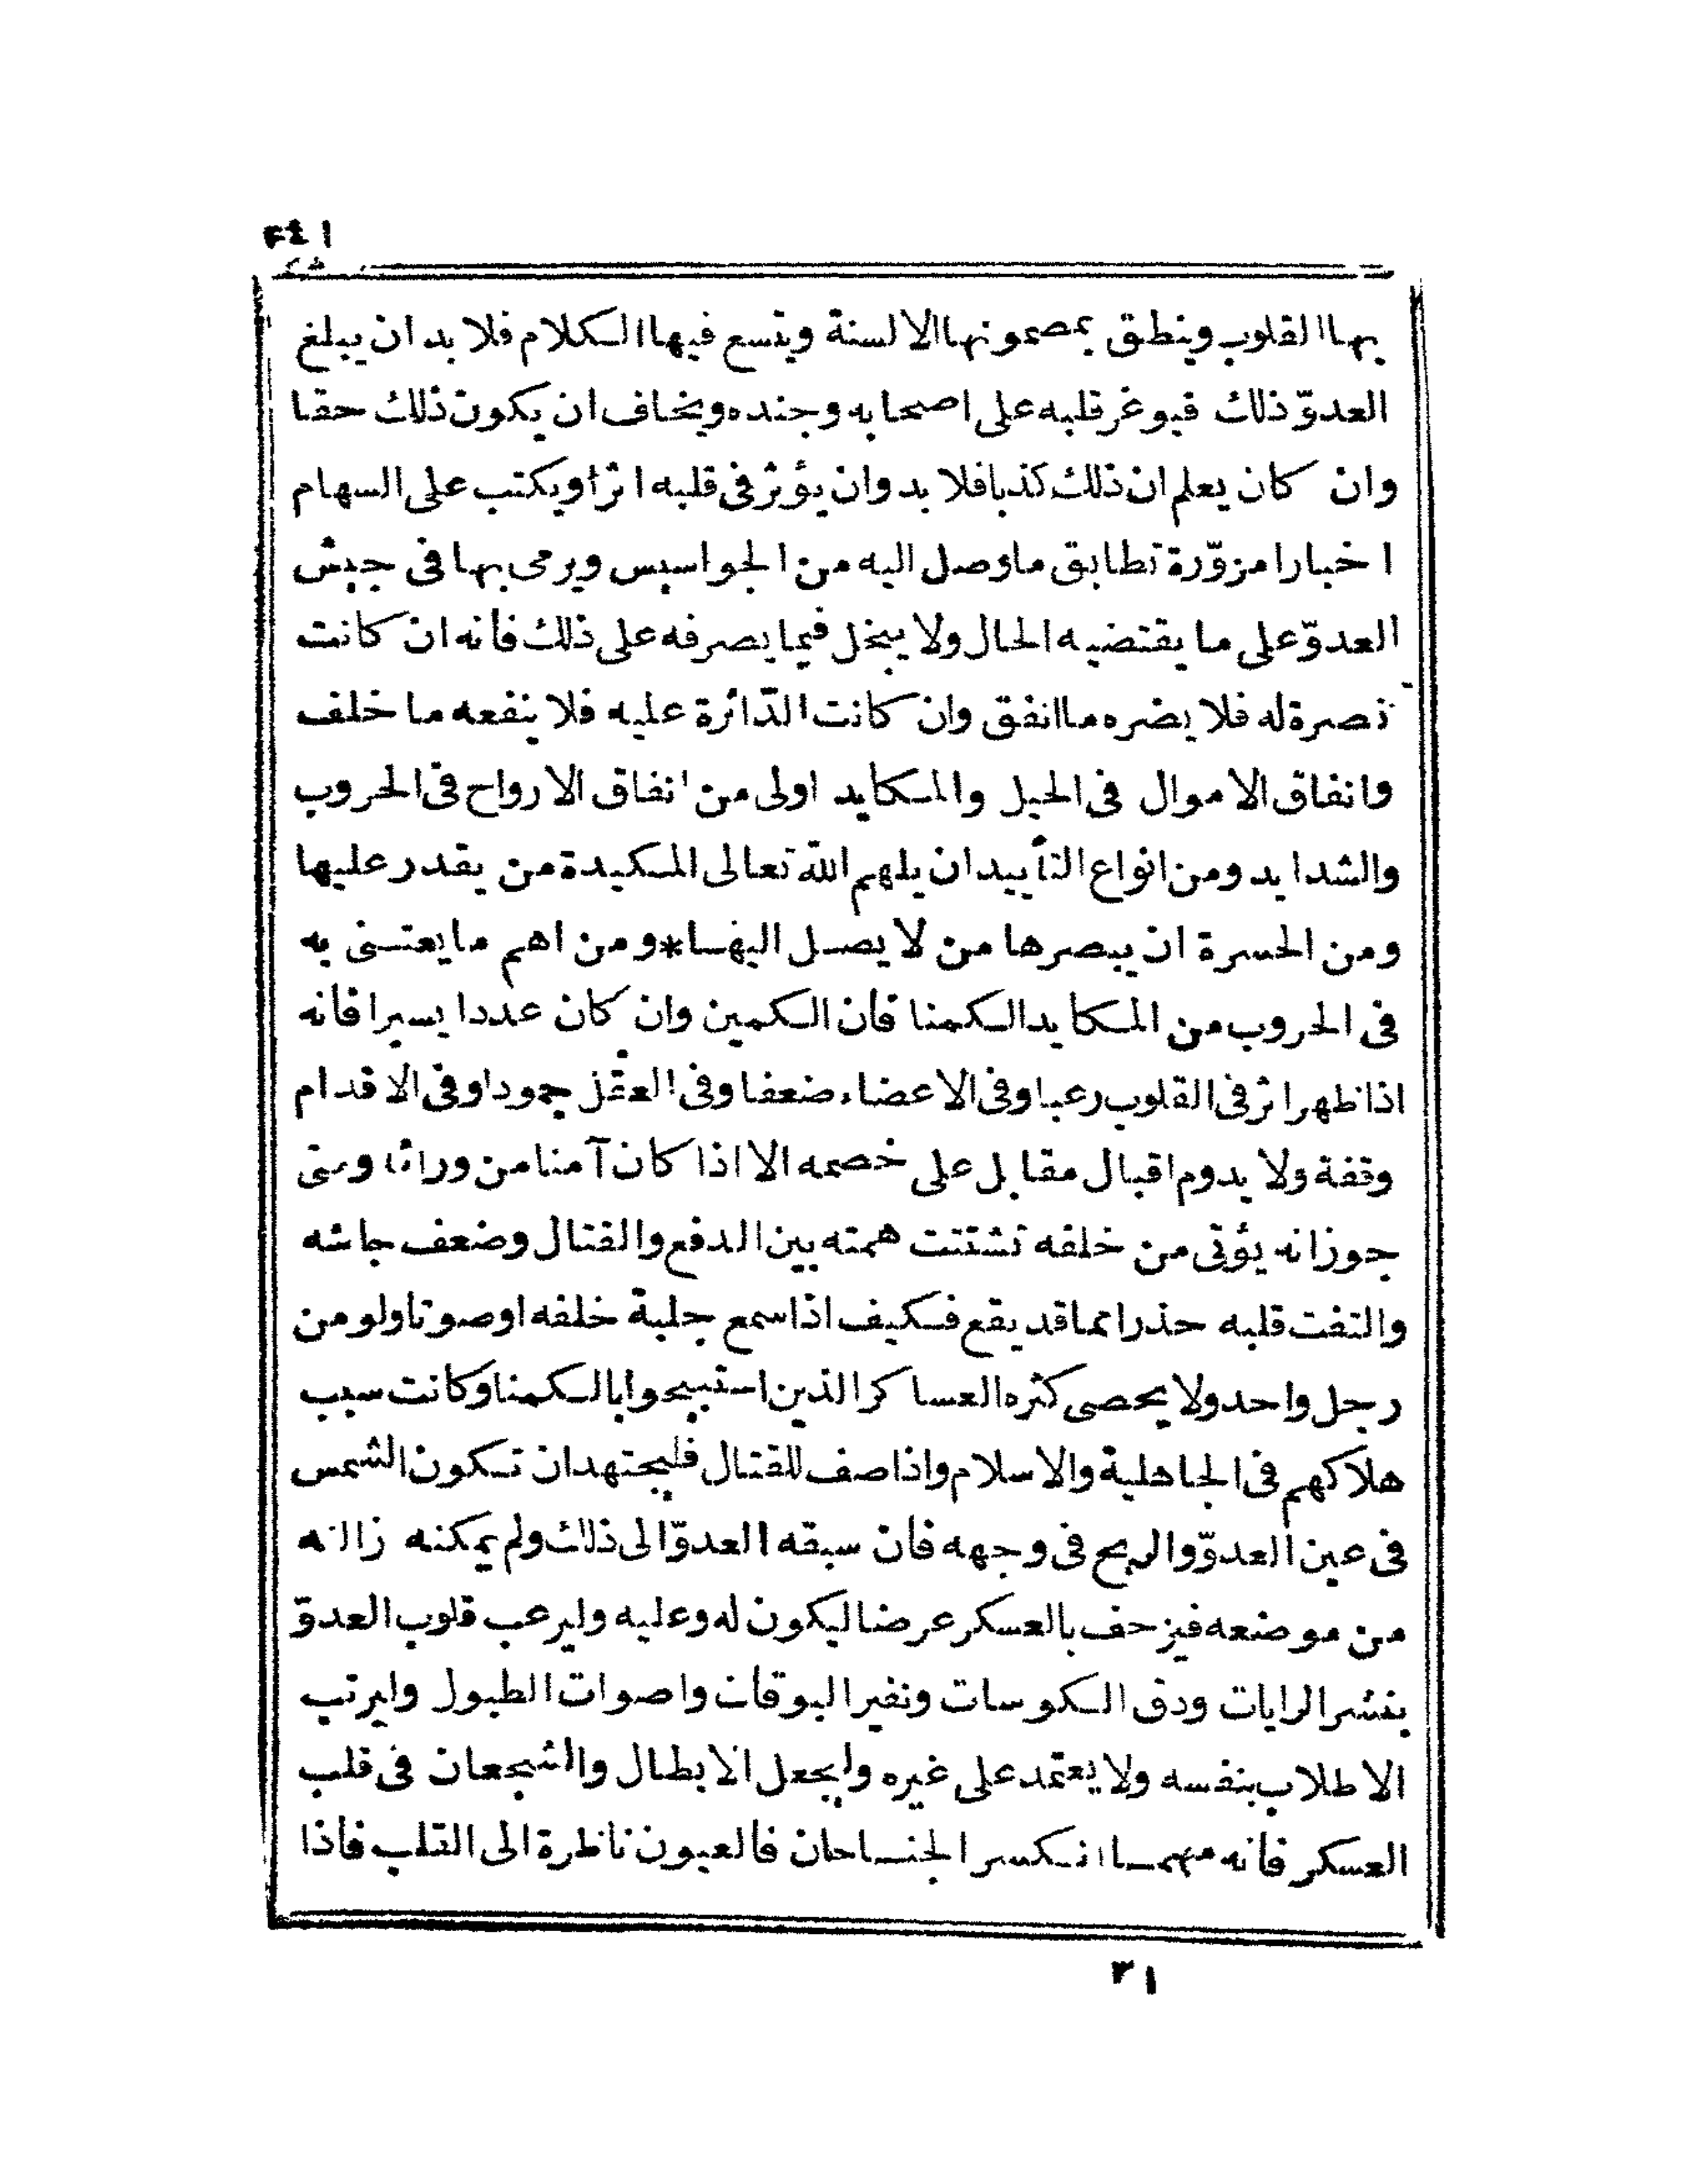 ٢٤١
بها القلوب وينطق بمضمونها الالسنة ويتسع فيها الكلام فلا بد ان يبلغ
العدوّ ذلك فيوغر قلبه على اصحابه وجنده ويخاف ان يكون ذلك حقا
وان كان يعلم ان ذلك كذبا فلا بد وان يؤثر فى قلبه اثرا ويكتب على السهام
اخبارا مزوّرة تطابق ما وصل اليه من الجواسيس ويرمى بها فى جيش
العدوّ على ما يقتضيه الحال ولا يبخل فيما يصرفه على ذلك فأنه ان كانت
نصرة له فلا يضره ما انفق وان كانت الدّائرة عليه فلا ينفعه ما خلف
وانفاق الاموال فى الحيل والمكايد اولى من انفاق الارواح فى الحروب
والشدايد ومن انواع التأييد ان يلهم الله تعالى المكيدة من يقدر عليها
ومن الحسرة ان يبصرها من لا يصل اليها * ومن اهم ما يعتنى به
فى الحروب من المكايد الكمنا فأن الكمين وان كان عددا يسيرا فأنه
اذا ظهر اثر فى القلوب رعبا وفى الاعضاء ضعفا وفى العقل جمودا وفى الاقدام
وقفة ولا يدوم اقبال مقابل على خصمه الا اذا كان آمنا من ورائه ومتى
جوز انه يؤتى من خلفه تشتتت همته بين الدفع والقتال وضعف جاشه
والتفت قلبه حذرا مما قد يقع فكيف اذا سمع جلبة خلفه او صوتا ولو من
رجل واحد ولا يحصى كثره العساكر الذين استبيحوا بالكمنا وكانت سبب
هلاكهم فى الجاهلية والاسلام واذا صف للقتال فليجتهد ان تكون الشمس
فى عين العدوّ والريح فى وجهه فأن سبقه العدوّ الى ذلك ولم يمكنه زالته
من موضعه فيزحف بالعسكر عرضا ليكون له وعليه وليرعب قلوب العدوّ
بنشر الرايات ودق الكوسات ونفير البوقات واصوات الطبول وليرتب
الاطلاب بنفسه ولا يعتمد على غيره وليجعل الابطال والشجعان فى قلب
العسكر فأنه مهما انكسر الجناحان فالعيون ناظرة الى القلب فأذا
٣١